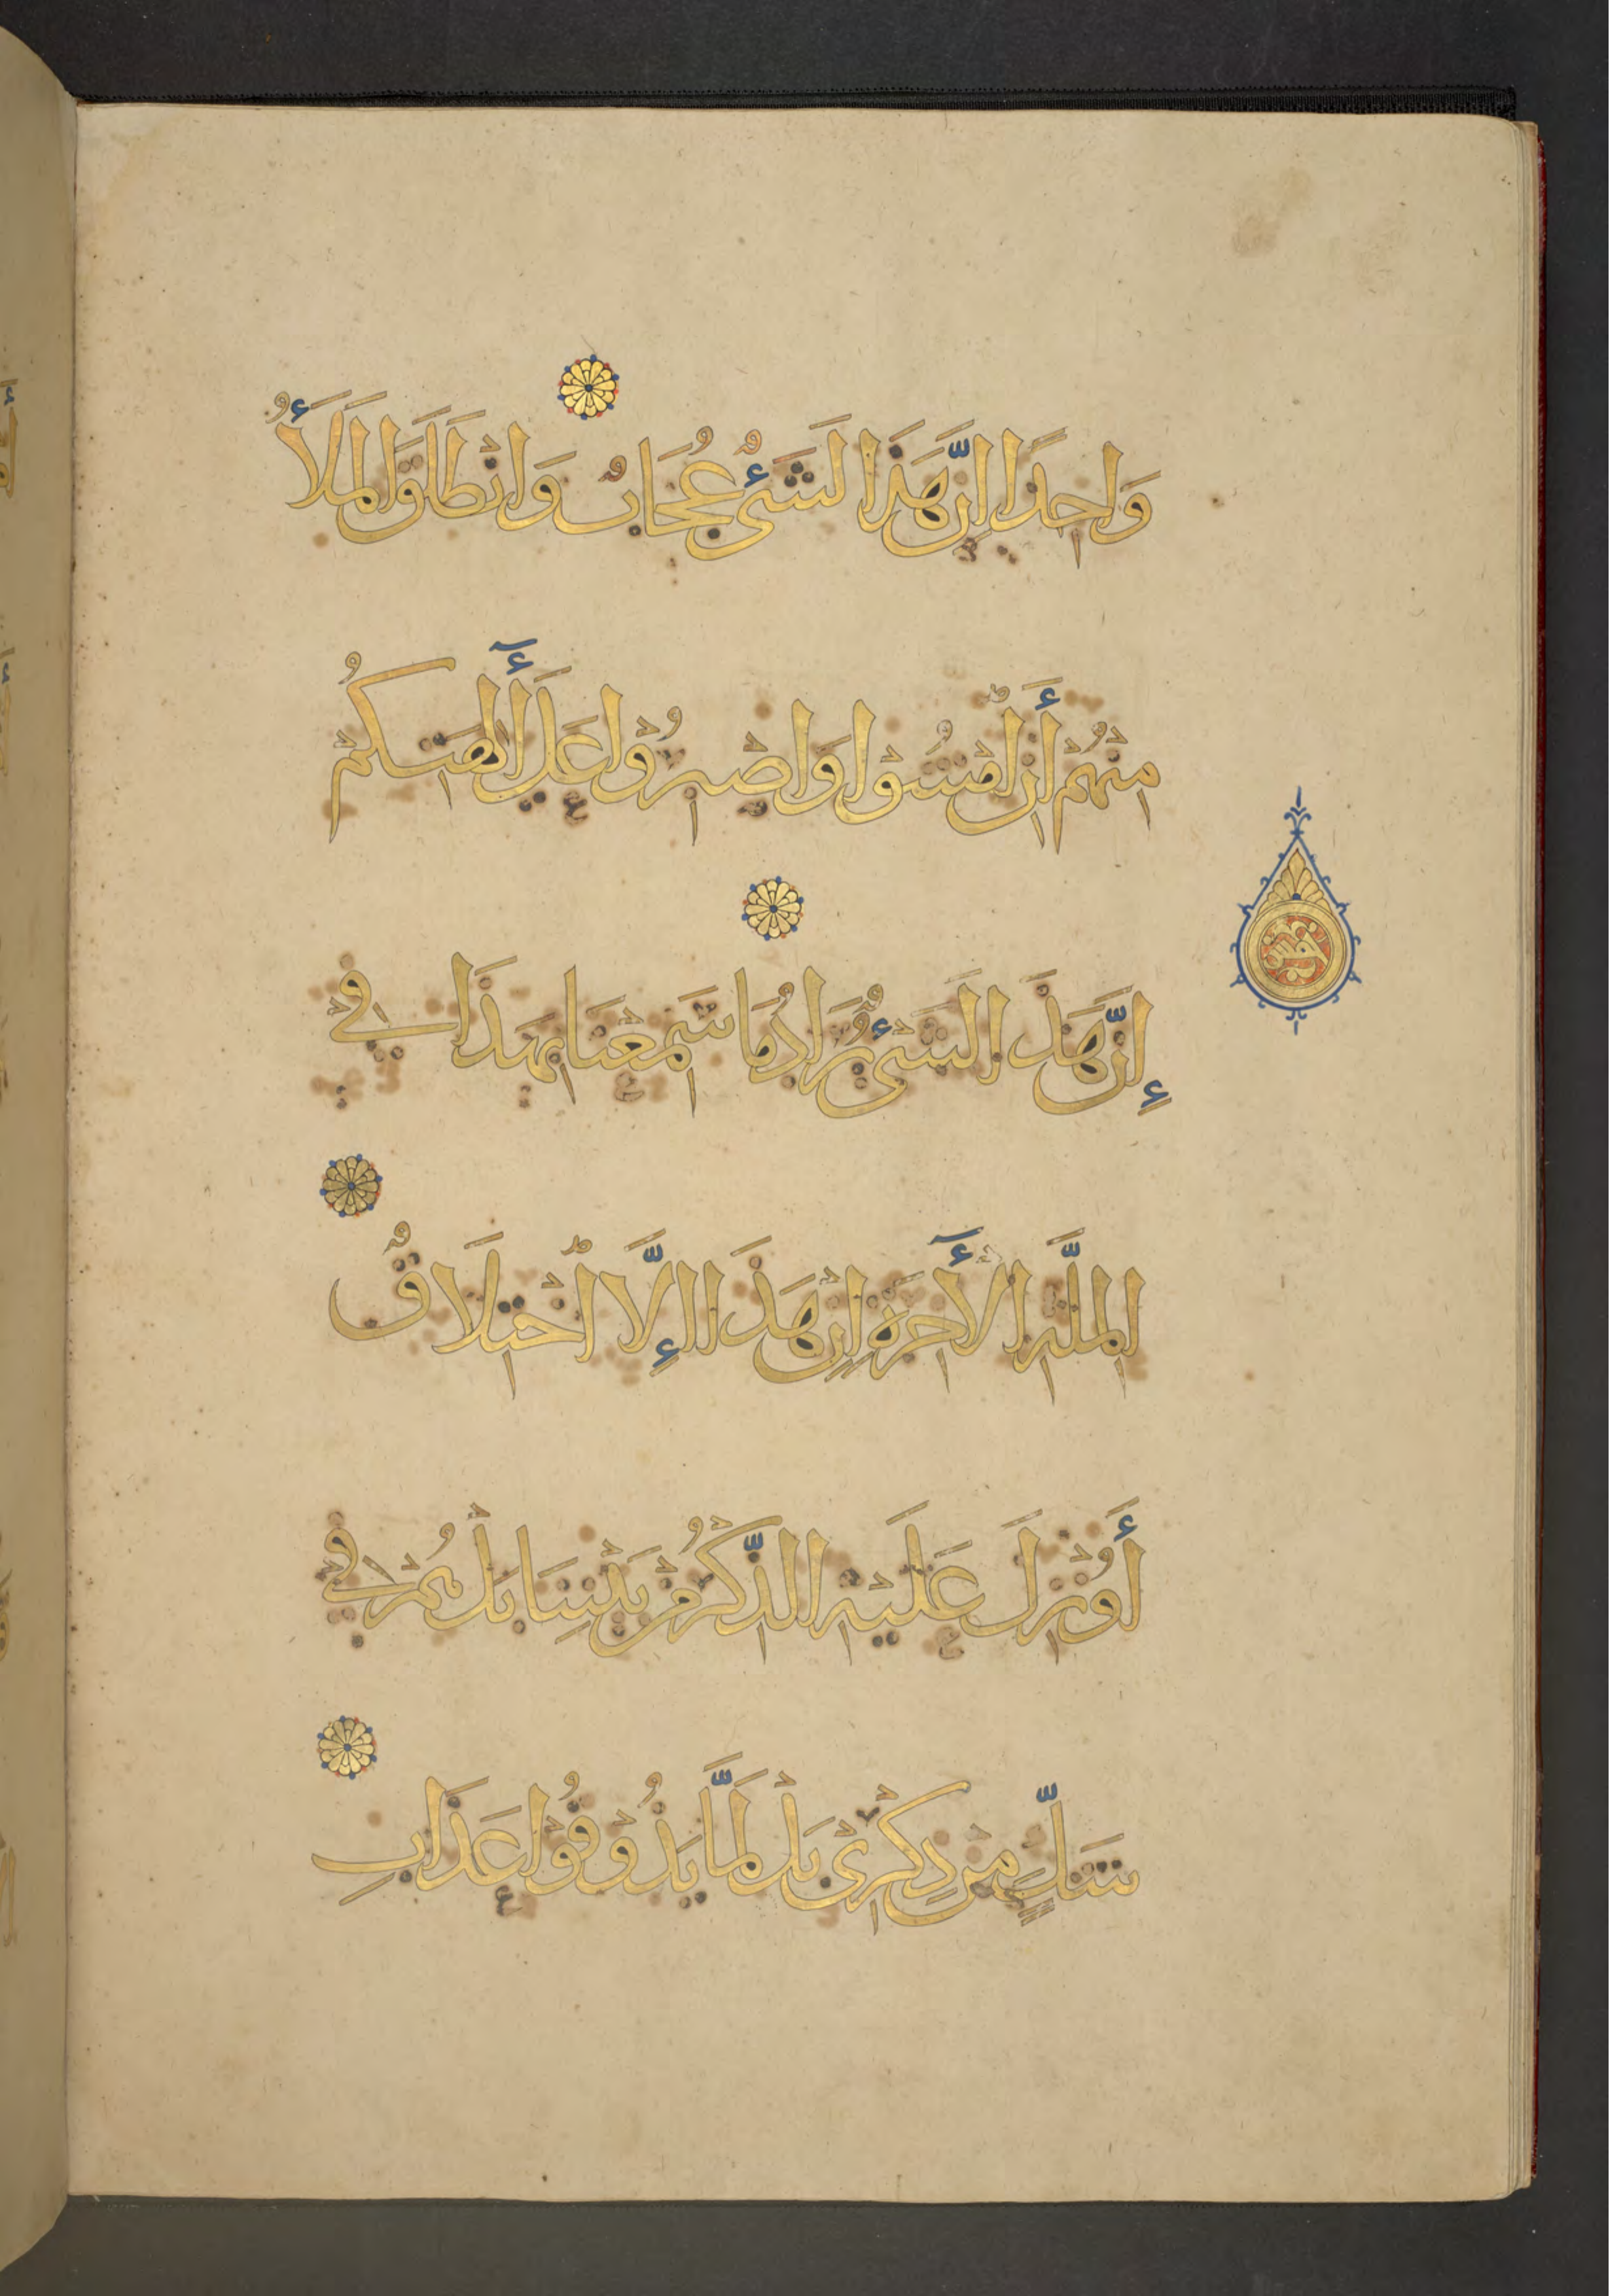 وَاحِدًا اِنَّ هَذَا لَشَىْءٌ عُجَابٌ وَانْطَلَقَ الْمَلَأُ
مِنْهُمْ أَنِ امْشُوْا وَاصْبِرُوْا عَلَى أٓلِهَتِكُمْ
إِنَّ هَذَا لَشَىْءٌ يُرَادُ مَا سَمِعْنَا بِهَذَا فِي
الْمِلَّةِ الْأٓخِرَةِ اِنْ هَذَا إِلَّا اخْتِلَاقٌ
أَوُنْزِلَ عَلَيْهِ الذِّكْرُ مِنْ بَيْنِنَا بَلْ هُمْ فِي
شَكٍّ مِنْ ذِكْرِىْ بَلْ لَمَّا يَذُوْقُوْا عَذَابِ